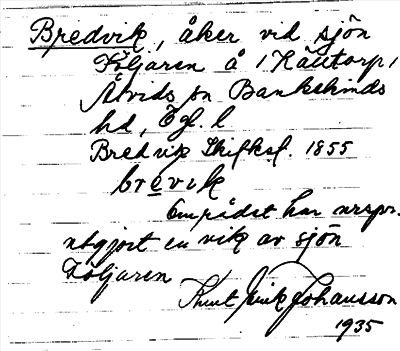 Bredvik, åker vid sjön
Följaren å 1 Källtorp,
Åtvids sn Bankekinds
hd, Ögl. l
Bredvik Skifksf. 1855
brevik
Området har urspr.
utgjort en vik av sjön
Följaren
Knut Erik Johansson
1935